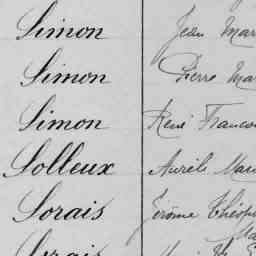 Simon Jean Mar
Simon Pierre Ma
Simon René Francoi
Solleux Aurèle Mau
Sorais Jérôme Théop
Ma
Sorais